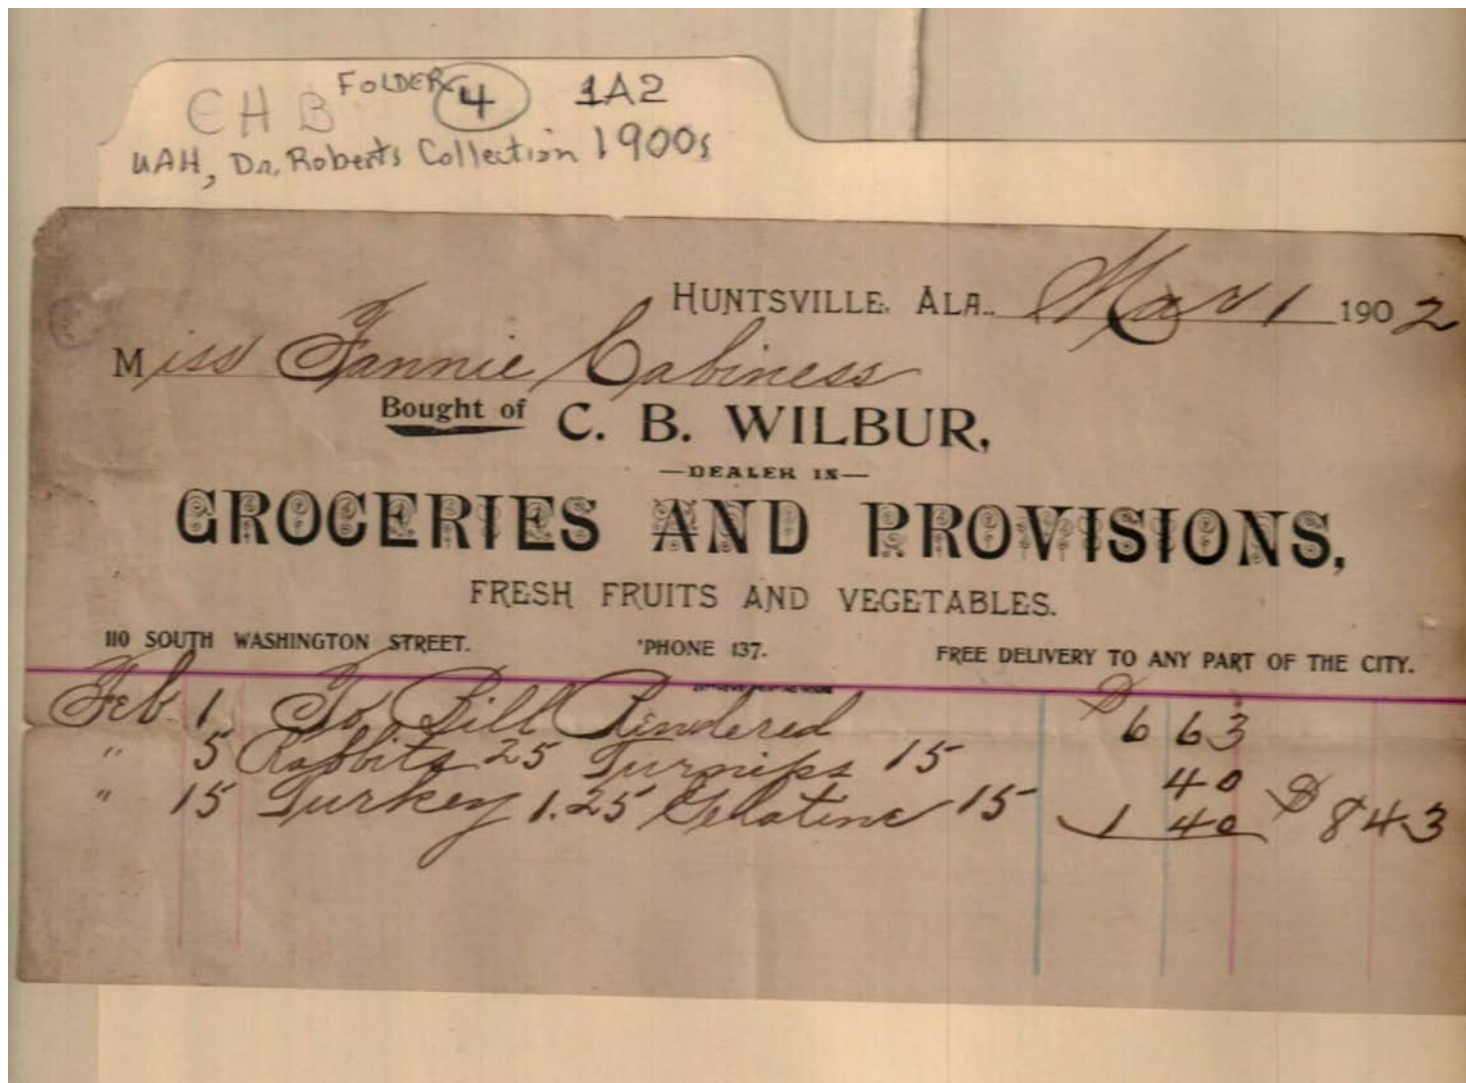 FOLDER 4 1A2
EHB
UAH, Dr. Roberts Collection 1900s
HUNTSVILLE, ALA., Mar 1 1902
Miss Fannie Cabiness
Bought of C. B. WILBUR,
—DEALER IN—
GROCERIES AND PROVISIONS,
FRESH FRUITS AND VEGETABLES.
110 SOUTH WASHINGTON STREET. 'PHONE 137. FREE DELIVERY TO ANY PART OF THE CITY.
Feb 1 To Bill Rendered $ 6 63
" 5 Rabbits 25 Turnips 15 40
" 15 Turkey 1.25 Gelatine 15 1 40 $ 8 43